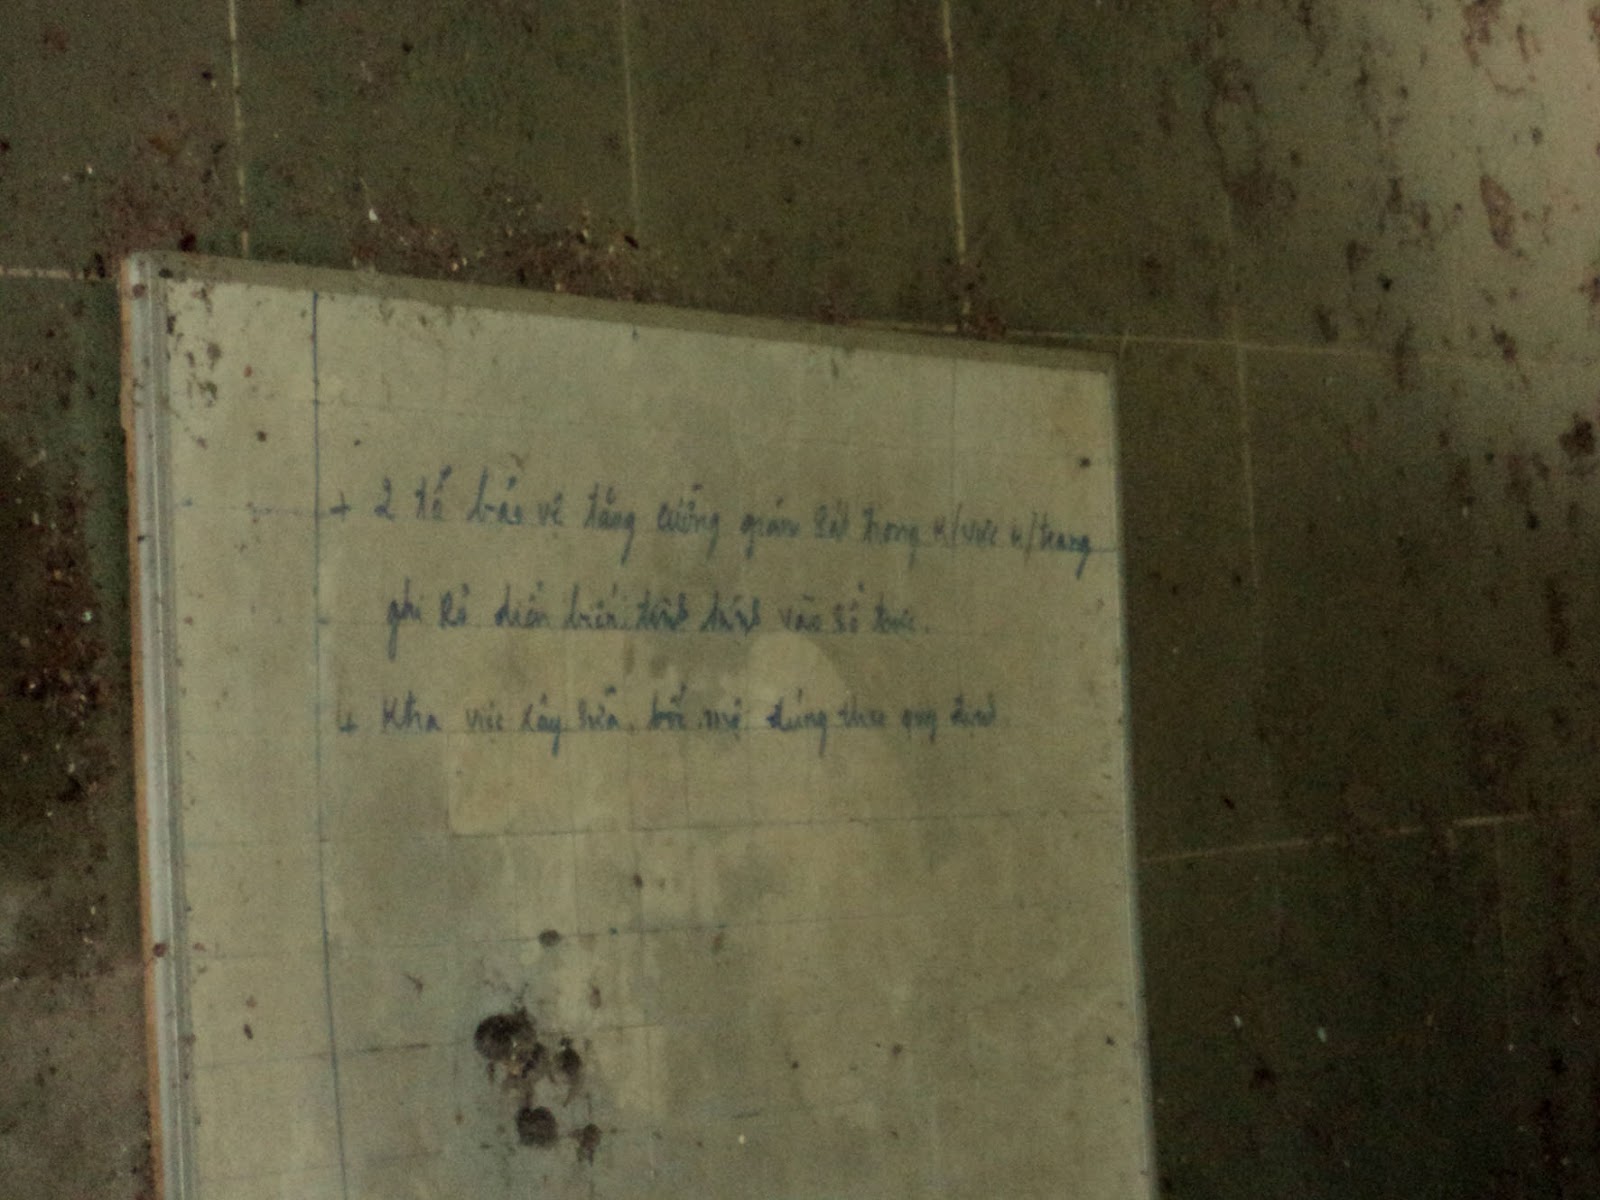 + 2 tổ bảo vệ tăng cường giám sát trong k/vực n/trang
ghi rỏ diển biến tình hình vào sổ trực.
+ Ktra việc xây sửa, bốc mộ đúng theo quy định